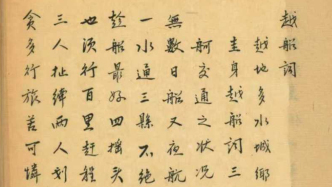 越船詞
越地多水城鄉
越船詞三
交通之狀况
無數日船又夜航
一水通三縣不絕
趁船最好四搖头
也須行百里赶程
三人扯縴兩人划
貪多行旅苦可憐